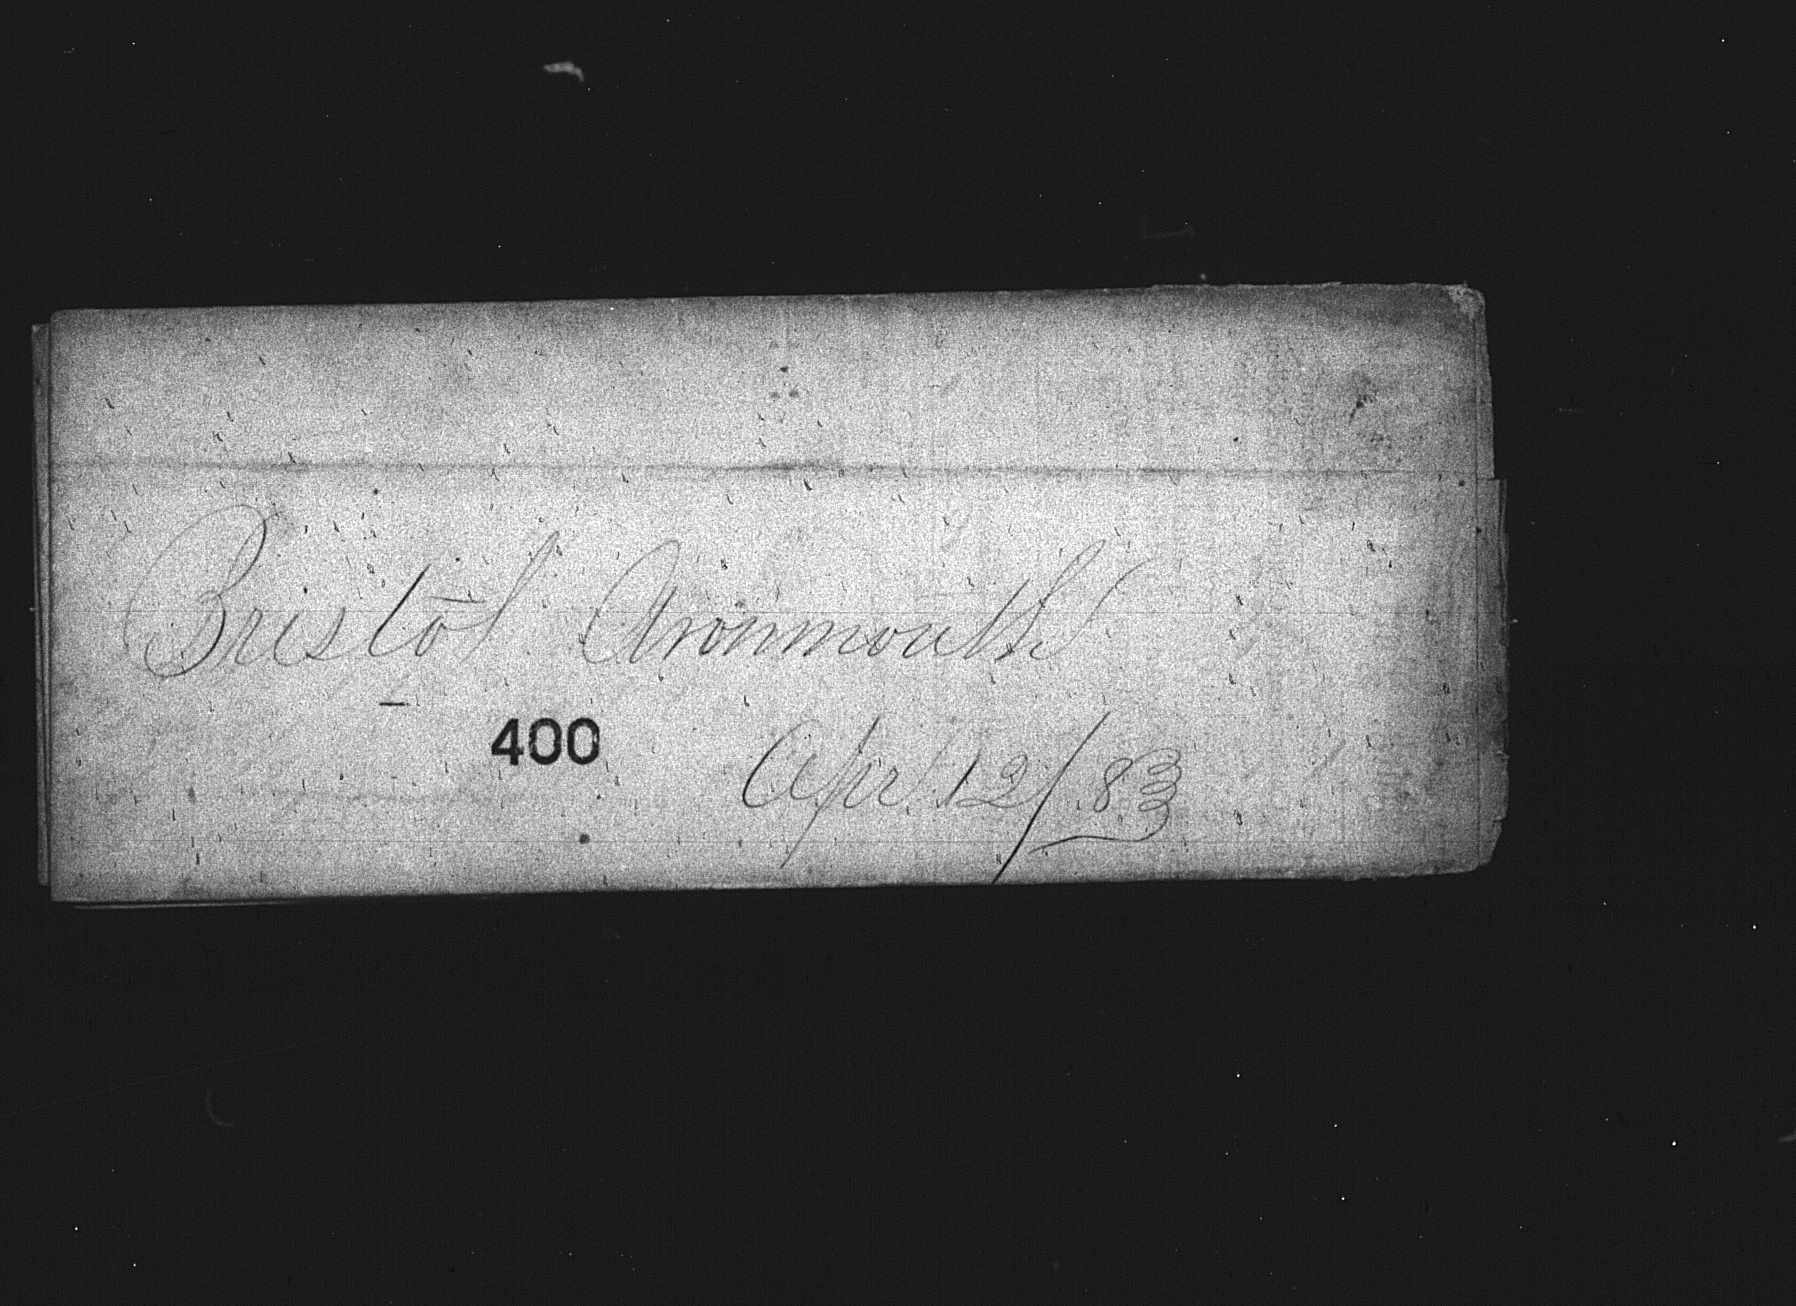 Bristol Avonmouth
400
Apr 12/83